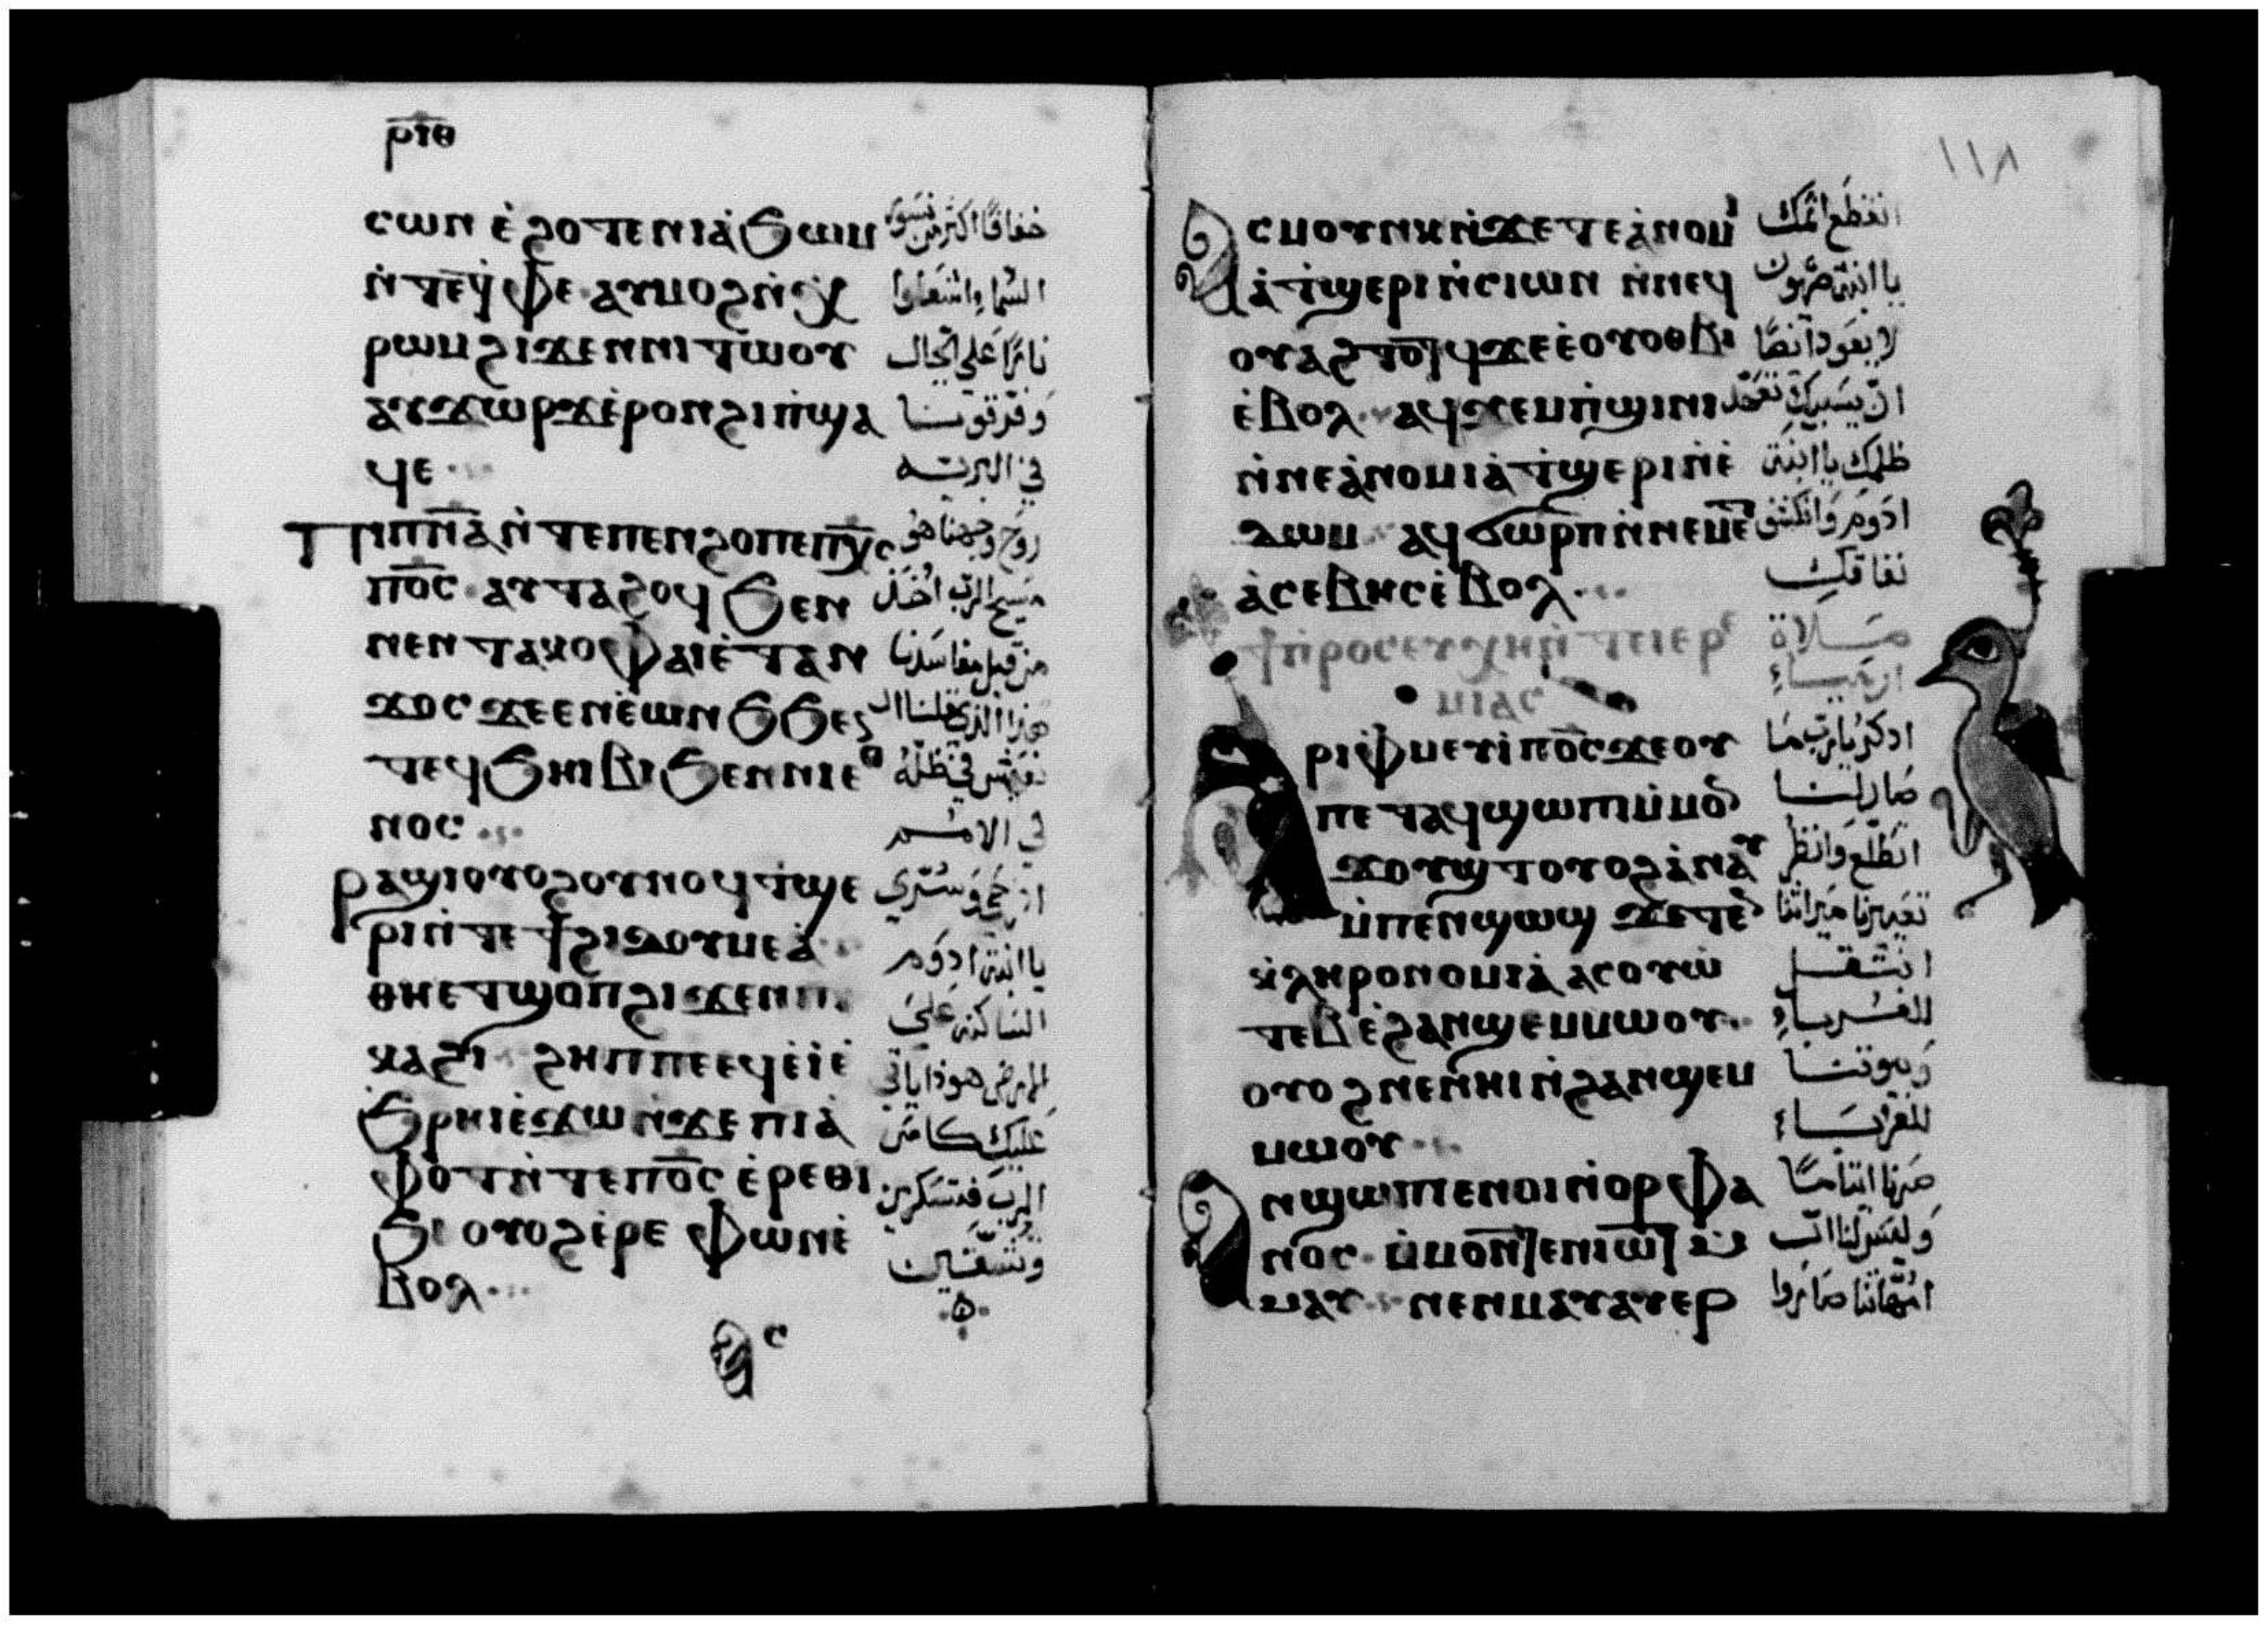 ⲣ̅ⲓ̅ⲑ̅
ⲥⲱⲛ ⲉ̀ϩⲟⲧⲉ ⲛⲓⲁ̀ϧⲱⲙ خفافًا اكثر من نسور
ⲛ̀ⲧⲉⲧ̀ⲫⲉ ⲁⲩⲙⲟϩ ⲛ̀ⲭ̀ السما واشعلوا
ⲣⲱⲙ ϩⲓϫⲉⲛ ⲛⲓⲧⲱⲟⲩ نارًا على الجبال
ⲁⲩϫⲱⲣϫ ⲉ̀ⲣⲟⲛ ϩⲓ ⲡ̀ϣⲁ
ϥⲉ في البريه
Ⲡⲓⲡ̅ⲛ̅ⲁ̅ ⲛ̀ⲧⲉ ⲡⲉⲛϩⲟ ⲡⲉ ⲡⲭ̅ⲥ̅ روح وجهنا هو
ⲡ⳪ ⲁⲩⲧⲁϩⲟϥ ϧⲉⲛ مسيح الرب اخذ
ⲛⲉⲛⲧⲁⲕⲟ ⲫⲁⲓ ⲉ̀ⲧⲁⲛ من قبل مفاسدنا
ϫⲟⲥ ϫⲉ ⲉⲛⲉ̀ⲱⲛϧ ϧⲉⲛ
ⲧⲉϥϧⲏⲓⲃⲓ ϧⲉⲛ ⲛⲓⲉⲑ نعيش في ظله
ⲛⲟⲥ في الامم
ⲣⲁϣⲓ ⲟⲩⲟϩ ⲟⲩⲛⲟϥ ⲧ̀ϣⲉ افرحي وسُرّي
ⲣⲓ ⲛ̀ⲧⲉ ϯϩⲓⲇⲟⲩⲙⲉⲁ̀ يا ابنة ادوم
ⲑⲏⲉⲧϣⲟⲡ ϩⲓϫⲉⲛ ⲡⲓ الساكنه على
ⲕⲁϩⲓ ϩⲏⲡⲡⲉ ⲉϥⲉ̀ⲓ̀ ⲉ̀ الارض هوذا ياتي
ϩⲣⲏⲓ ⲉ̀ϫⲱ ⲛ̀ϫⲉ ⲡⲓⲁ̀ عليك كاس
ⲫⲟⲧ ⲛ̀ⲧⲉ ⲡ⳪ ⲉ̀ⲣⲉⲑⲓ الرب فتسكرين
ϧⲓ ⲟⲩⲟϩ ⲉ̀ⲣⲉ ⲫⲱⲛ ⲉ̀
ⲃⲟⲗ
١١٨
Ⲁⲥⲙⲟⲩⲛⲕ ⲛ̀ϫⲉ ⲧⲉⲁ̀ⲛⲟⲙ انقطع اثمك
ⲓⲁ̀ ⲧ̀ϣⲉⲣⲓ ⲛ̀ⲥⲓⲱⲛ ⲛ̀ⲛⲉϥ يا ابنة صهيون
ⲟⲩⲁϩⲧⲟⲧϥ ϫⲉ ⲉ̀ⲟⲩⲟⲑⲃⲓ لا يعود ايضًا
ⲉ̀ⲃⲟⲗ ⲁϥϫⲉⲙⲡ̀ϣⲓⲛⲓ ان يسبيك تعهد
ⲛ̀ⲛⲉⲁ̀ⲛⲟⲙⲓⲁ̀ ⲧ̀ϣⲉⲣⲓ ⲛ̀ⲉ̀ ظلمك يا ابنة
ⲇⲱⲙ ⲁϥϭⲱⲣⲡ ⲛ̀ⲛⲉⲙⲉⲧ ادوم وانكشف
ⲁ̀ⲥⲉⲃⲏⲥ ⲉ̀ⲃⲟⲗ نفاقك
ϯⲡⲣⲟⲥⲉⲩⲭⲏ ⲛ̀ⲧⲉ ⲓⲉⲣⲉ صلاة
ⲙⲓⲁⲥ ارمياء
ⲁⲣⲓⲫⲙⲉⲩⲓ ⲡ⳪ ϫⲉ ⲟⲩ ادكر يارب ما
ⲡⲉⲧⲁϥϣⲱⲡⲓ ⲙ̀ⲙⲟⲛ صار لنا
ϫⲟⲩϣⲧ ⲟⲩⲟϩ ⲁ̀ⲛⲁⲩ اتطلع وانظر
ⲙ̀ⲡⲉⲛϣⲱϣ ϫⲉ ⲧⲉⲛ تعييرنا ميراثنا
ⲕ̀ⲗⲏⲣⲟⲛⲟⲙⲓⲁ̀ ⲁⲥⲟⲩⲱ̀ انتقل
ⲧⲉⲃ ⲉ̀ϩⲁⲛϣⲉⲙⲙⲱⲟⲩ للغرباء
ⲟⲩⲟϩ ⲛⲉⲛⲏⲓ ⲛ̀ϩⲁⲛϣⲉⲙ وبيوتنا
ⲙⲱⲟⲩ للغرباء
ⲁⲛϣⲱⲡⲓ ⲉⲛⲟⲓ ⲛ̀ⲟⲣⲫⲁ صرنا ايتامًا
ⲛⲟⲥ ⲙ̀ⲙⲟⲛⲧⲉⲛ ⲓⲱⲧ ⲙ̀ وليس لنا اب
ⲙⲁⲩ ⲛⲉⲛⲙⲁⲩ ⲁⲩⲉⲣ امهاتنا صاروا